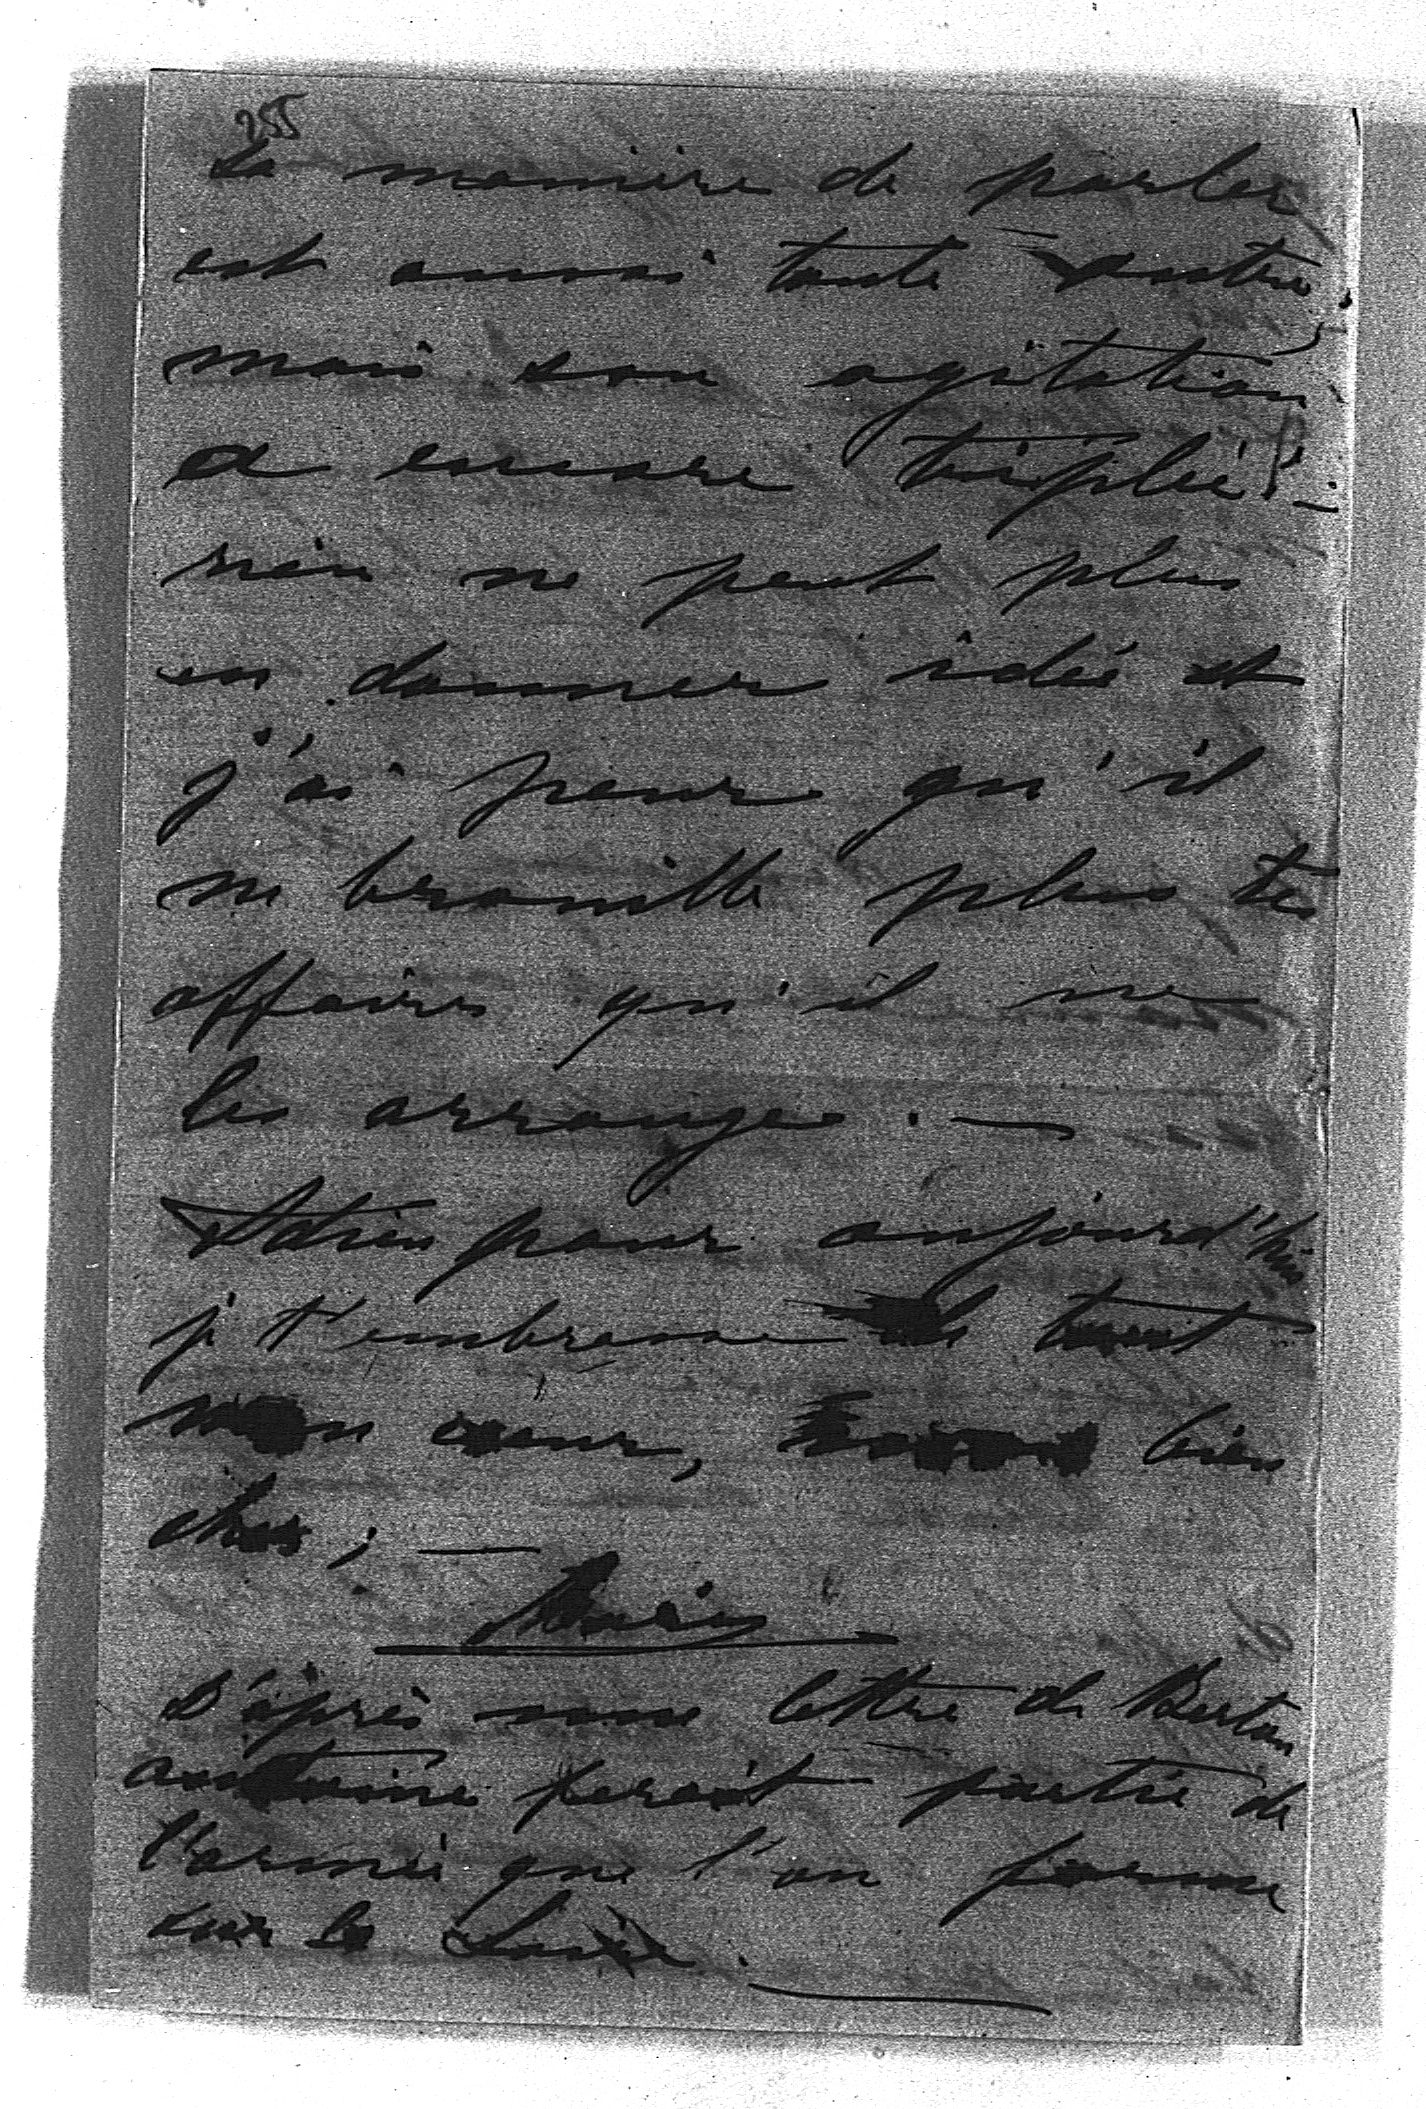 255
Sa manière de parler
est aussi toute autre,
mais son agitation
a encore triplée. —
rien ne peut plus
en donner idée et
j'ai peur qu'il
ne brouille plus tes
affaires qu'il ne
les arrange. —
Adieu pour aujourd'hui
je t'embrasse de tout
mon cœur, bien
cher, —
D'après une lettre de Bertin
antoine ferait partie de
l'armée que l'on forme
sur la Loire. —